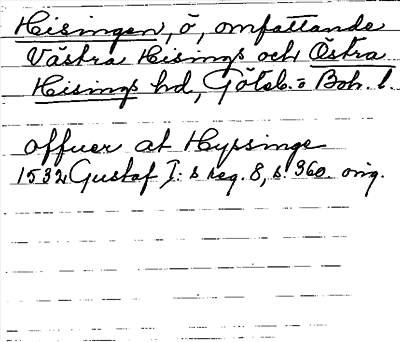 Hisingen, ö, omfattande
Västra Hisings och Östra
Hisings hd, Göteb. o Boh. l.
offuer at Hyssinge
1532 Gustaf I:s reg. 8, s. 360. orig.